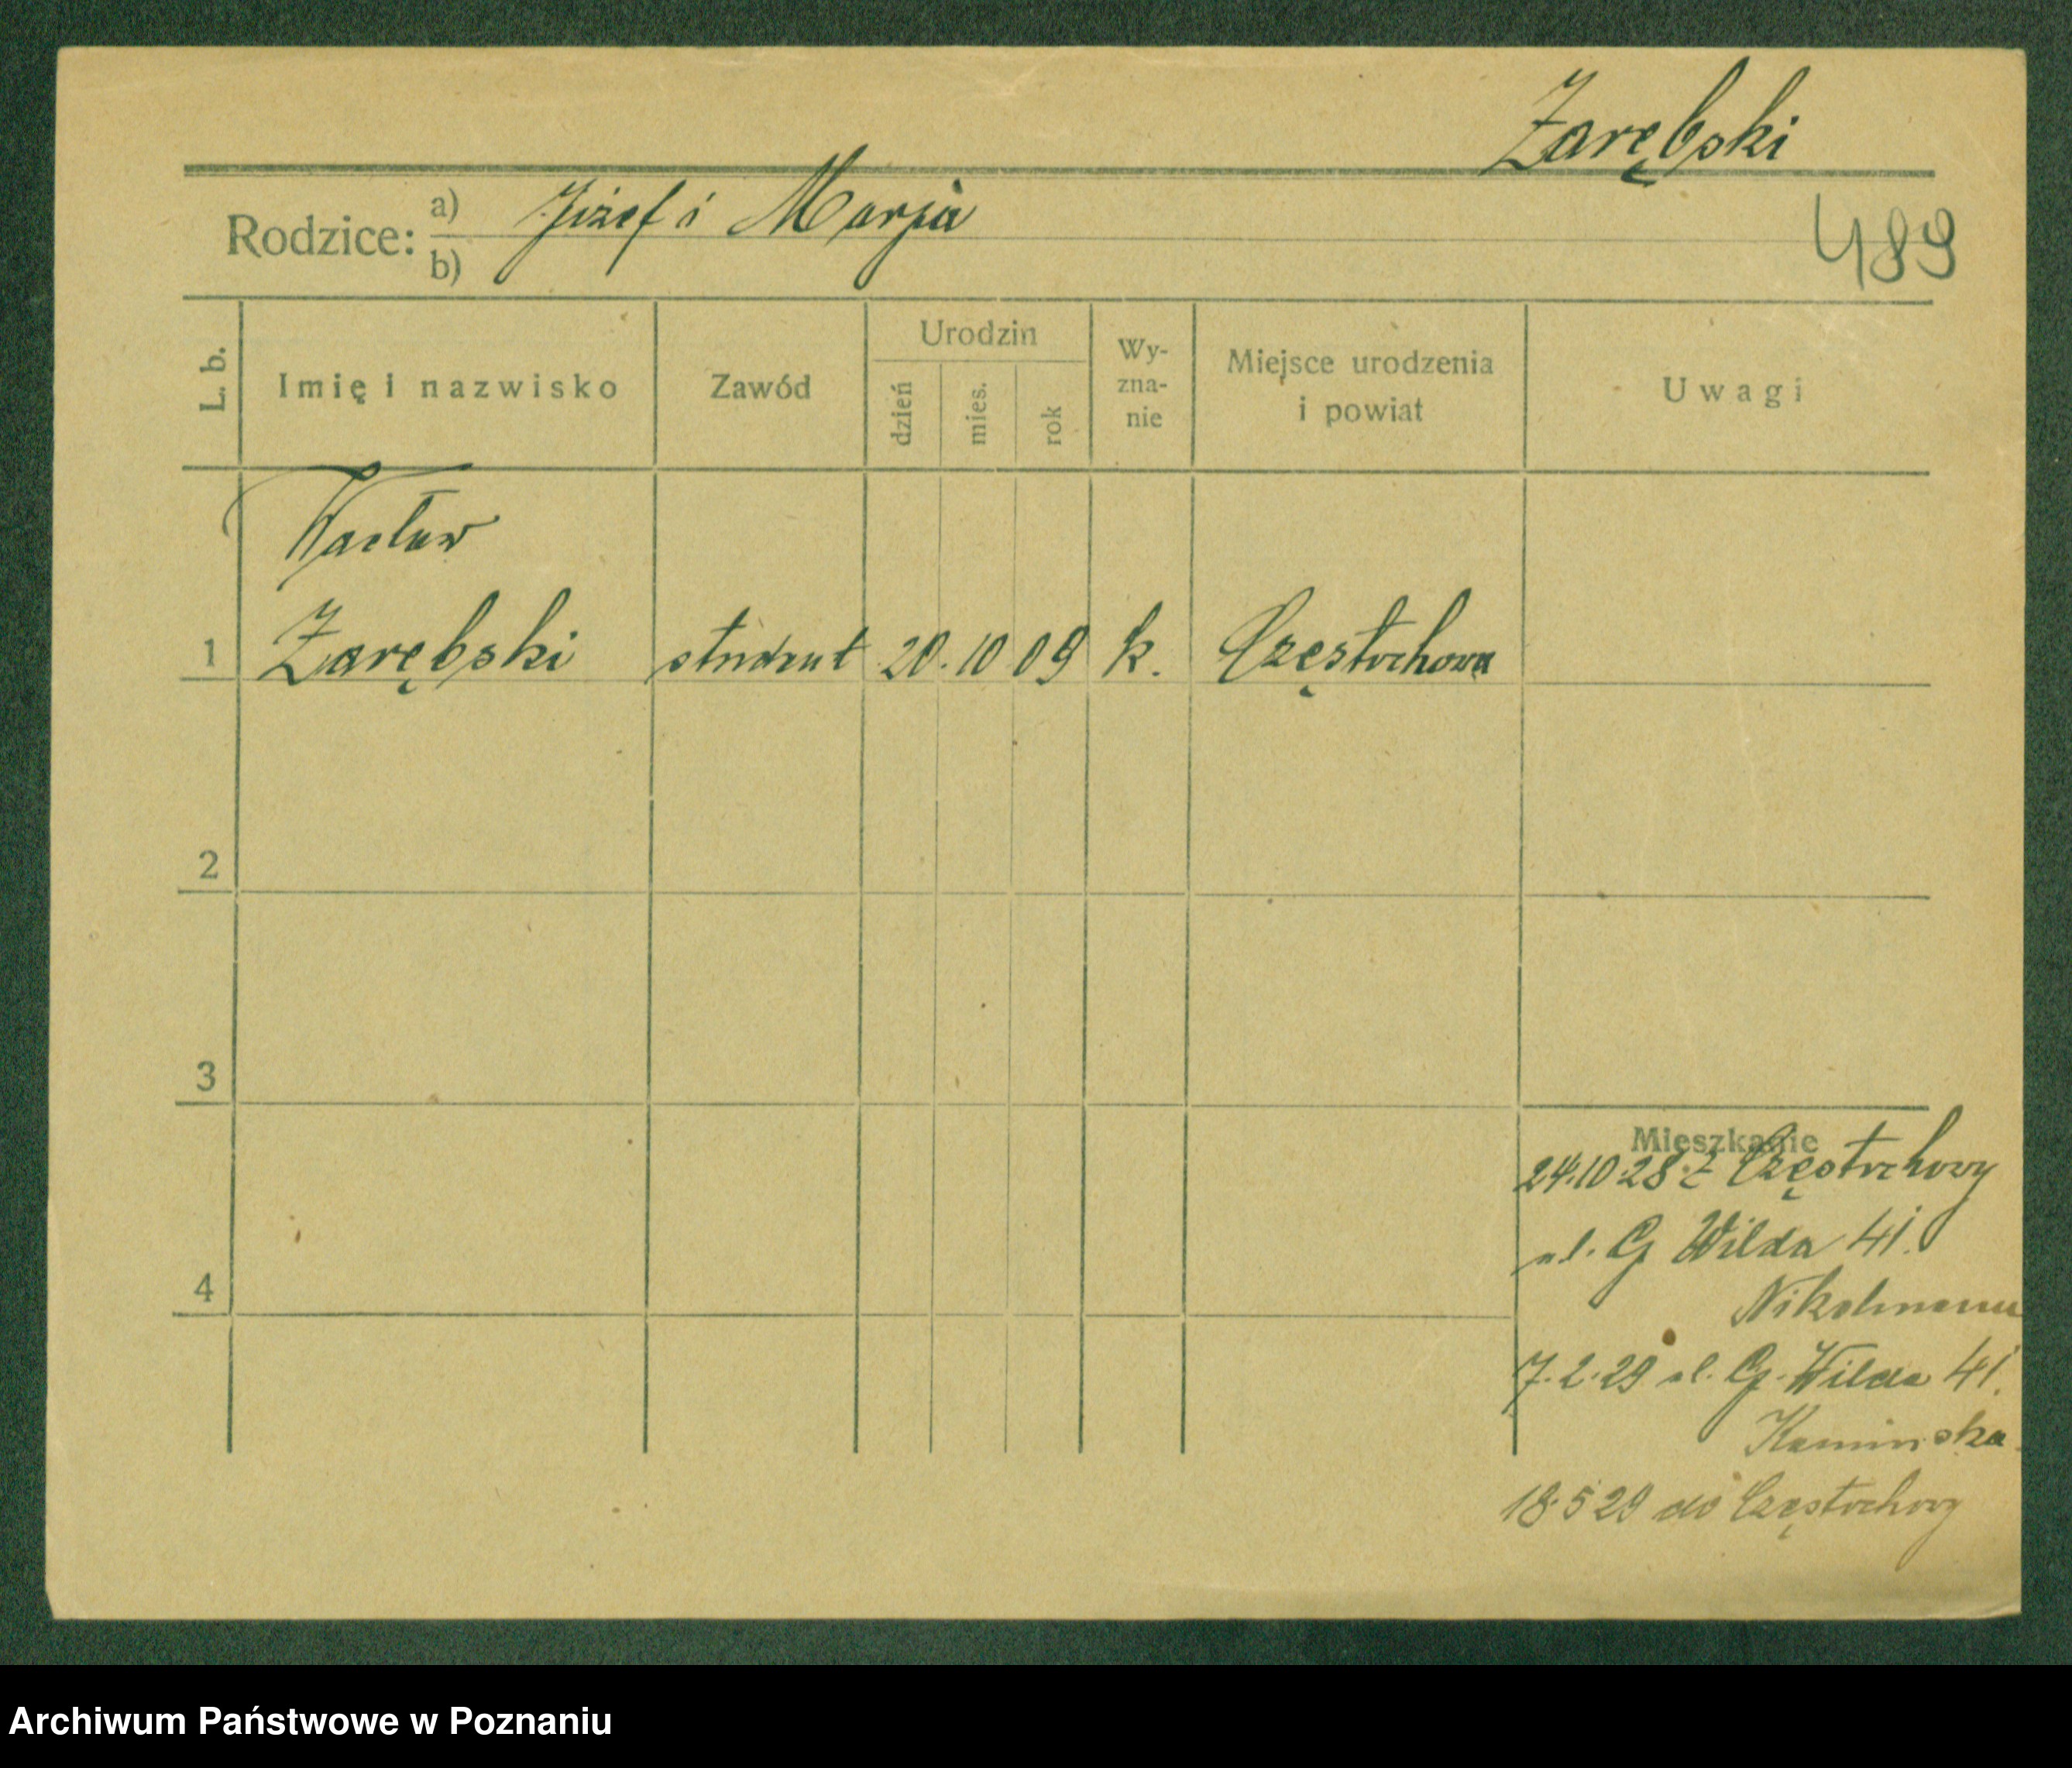 Zarębski
Rodzice: a) Józef i Marja
b)
489
L. b. Imię i nazwisko Zawód Urodzin dzień mies. rok Wy-zna-nie Miejsce urodzenia i powiat Uwagi
Wacław
1 Zarębski student 20. 10 09 k. Częstochowa
2
3
Mieszkanie
24.10.28 z Częstochowy
ul. G Wilda 41.
4
7.2.29 ul. G. Wilda 41.
Kaminska
18.5 29 do Częstochowy
Archiwum Państwowe w Poznaniu